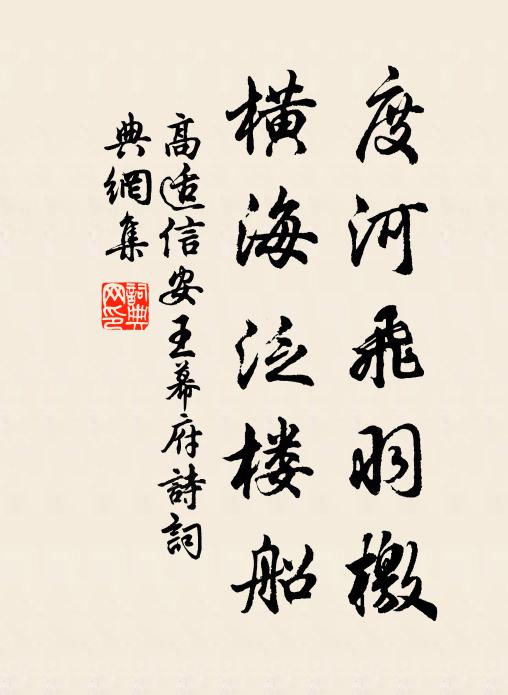 度河飛羽檄
橫海泛楼船
高适信安王幕府詩詞
典網集
詞典
网印